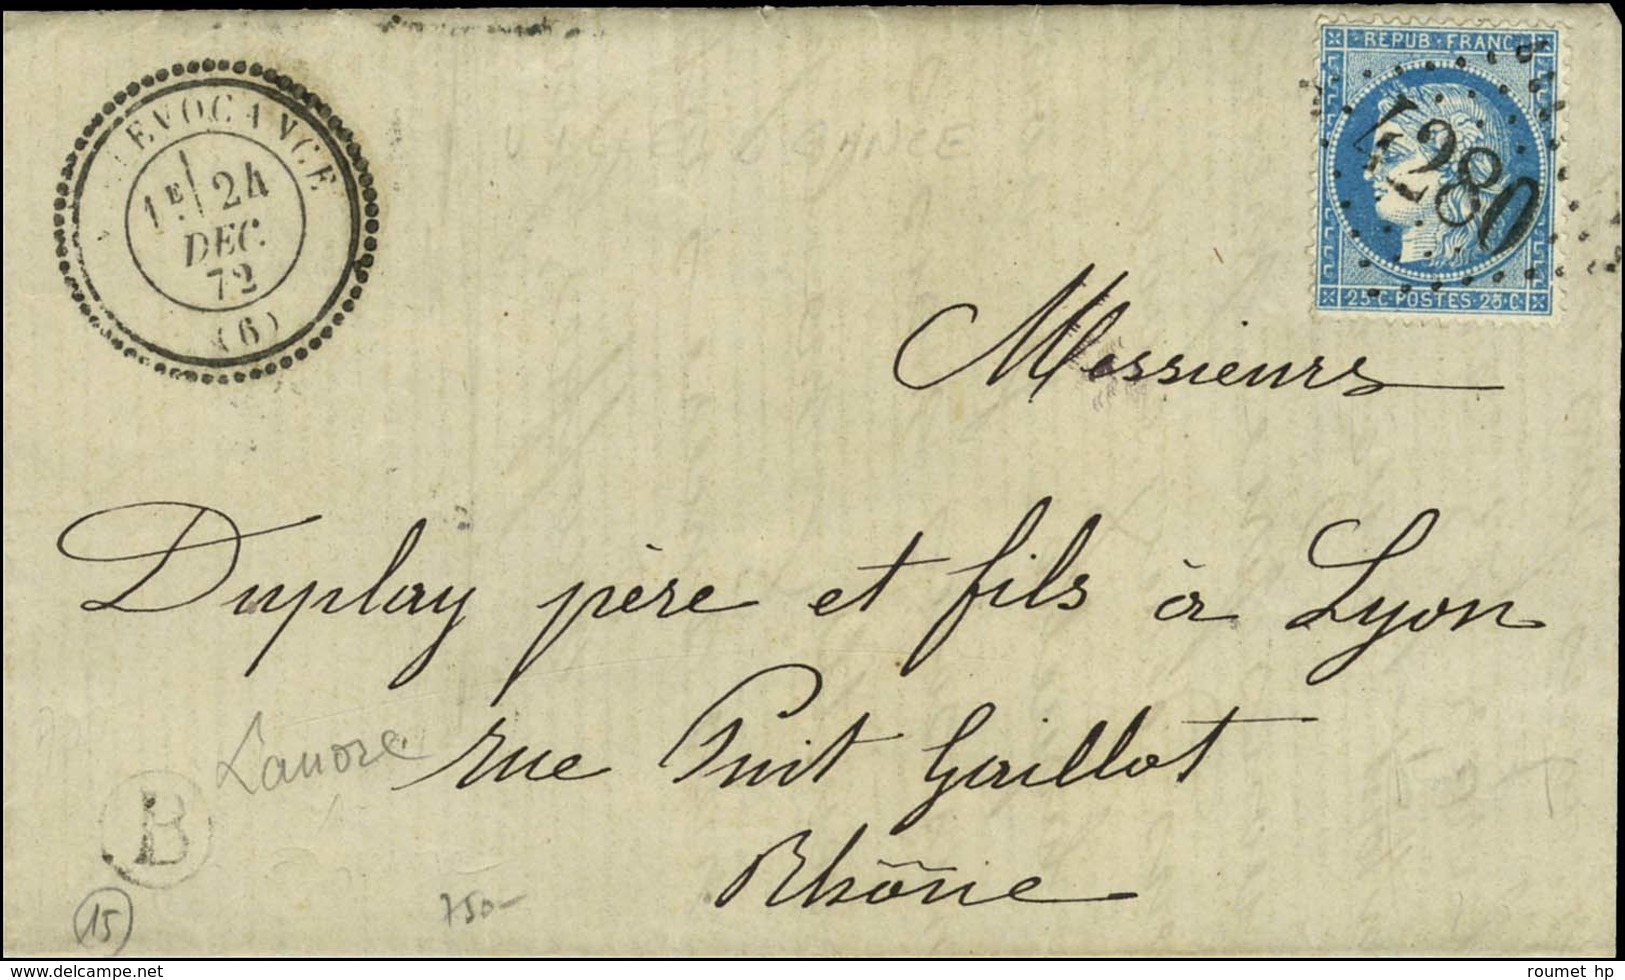 EVOCANCE
1E 24
DEC.
72
(6)
REPUB. FRANC
4280
25·C·POSTES·25·C
Messieurs
Duplay père et fils à Lyon
rue Puit Gaillot
Rhône
B
15
750-
www.delcampe.net
roumet hp